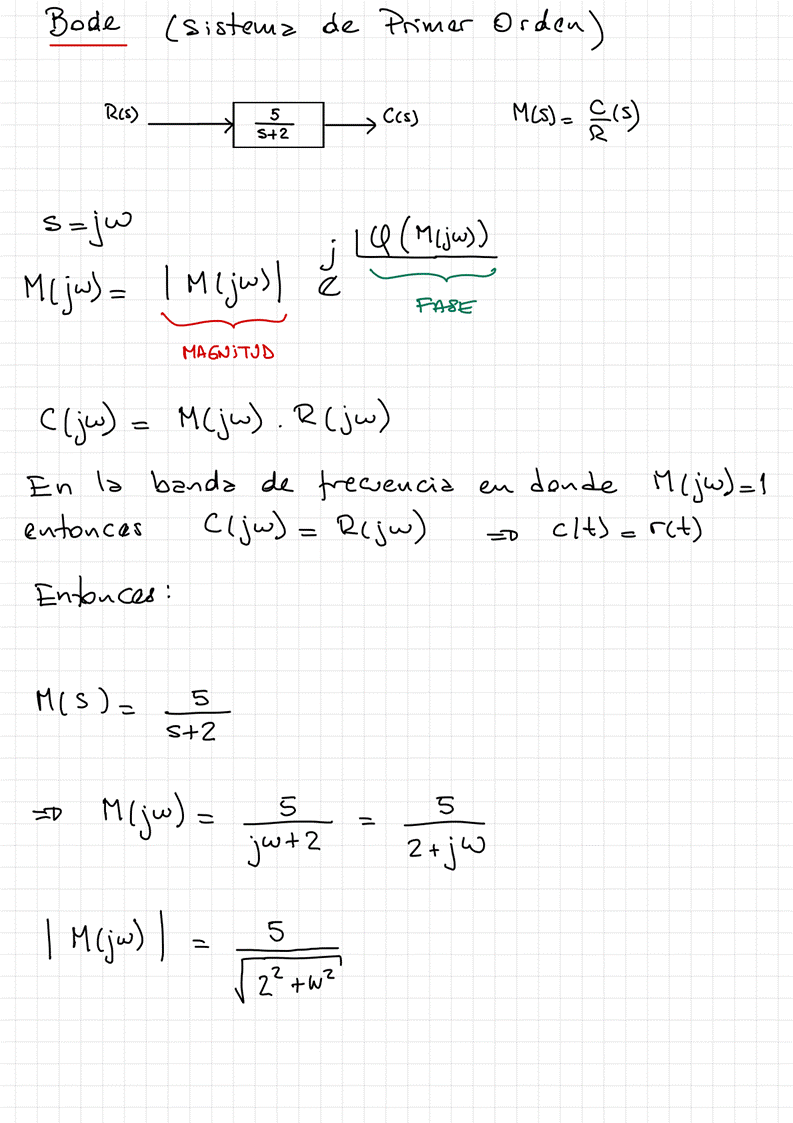 Bode (Sistema de Primer Orden)
R(s) 5/(s+2) C(s) M(s) = C/R (s)
s = jω
M(jω) = |M(jω)| e^{j∠φ(M(jω))}
FASE
MAGNITUD
C(jω) = M(jω) . R(jω)
En la banda de frecuencia en donde M(jω)=1
entonces C(jω) = R(jω) ⇒ c(t) = r(t)
Entonces:
M(s) = 5/(s+2)
⇒ M(jω) = 5/(jω+2) = 5/(2+jω)
|M(jω)| = 5/√(2²+ω²)